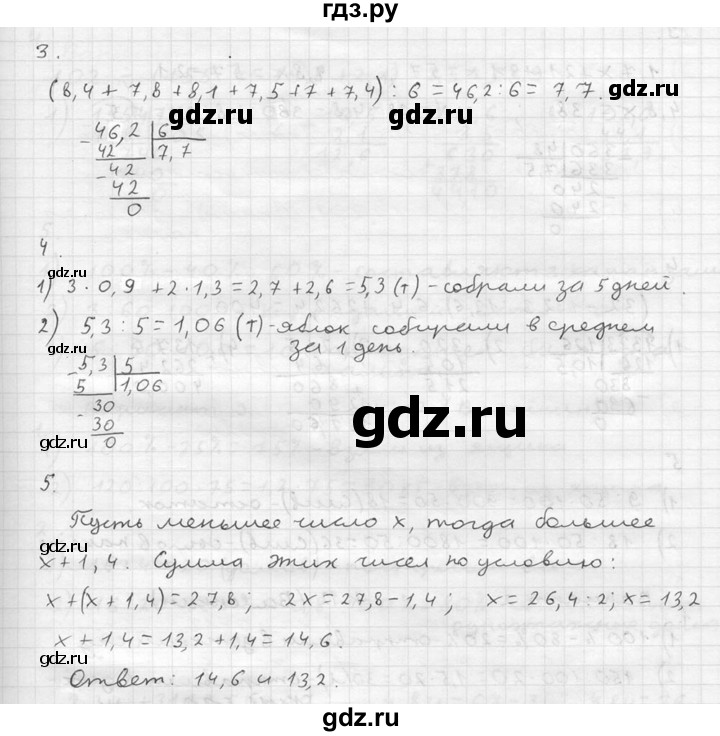 гдз.ру
3.
(8,4 + 7,8 + 8,1 + 7,5 + 7 + 7,4) : 6 = 46,2 : 6 = 7,7.
gdz.ru gdz.ru
- 46,2 | 6
42 | 7,7
- 42
42
0
gdz.ru
4.
1) 3 · 0,9 + 2 · 1,3 = 2,7 + 2,6 = 5,3 (т) - собрали за 5 дней.
gdz.ru
2) 5,3 : 5 = 1,06 (т) - яблок собирали в среднем
за 1 день.
- 5,3 | 5
5 | 1,06
- 30
30
0
gdz.ru
gdz.ru
5.
Пусть меньшее число x, тогда большее
x + 1,4. Сумма этих чисел по условию:
gdz.ru
x + (x + 1,4) = 27,8; 2x = 27,8 - 1,4; x = 26,4 : 2; x = 13,2
x + 1,4 = 13,2 + 1,4 = 14,6.
gdz.ru
Ответ: 14,6 и 13,2.
gdz.ru